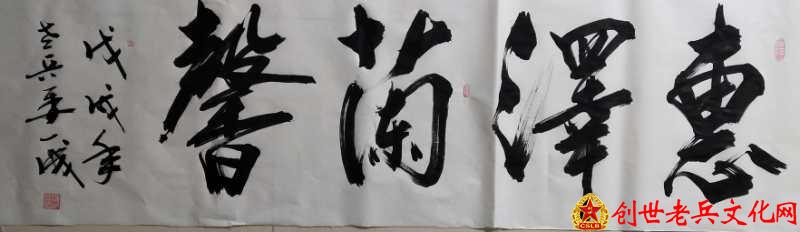 惠澤蘭馨
戊戌年
老兵
CSLB
创世老兵文化网